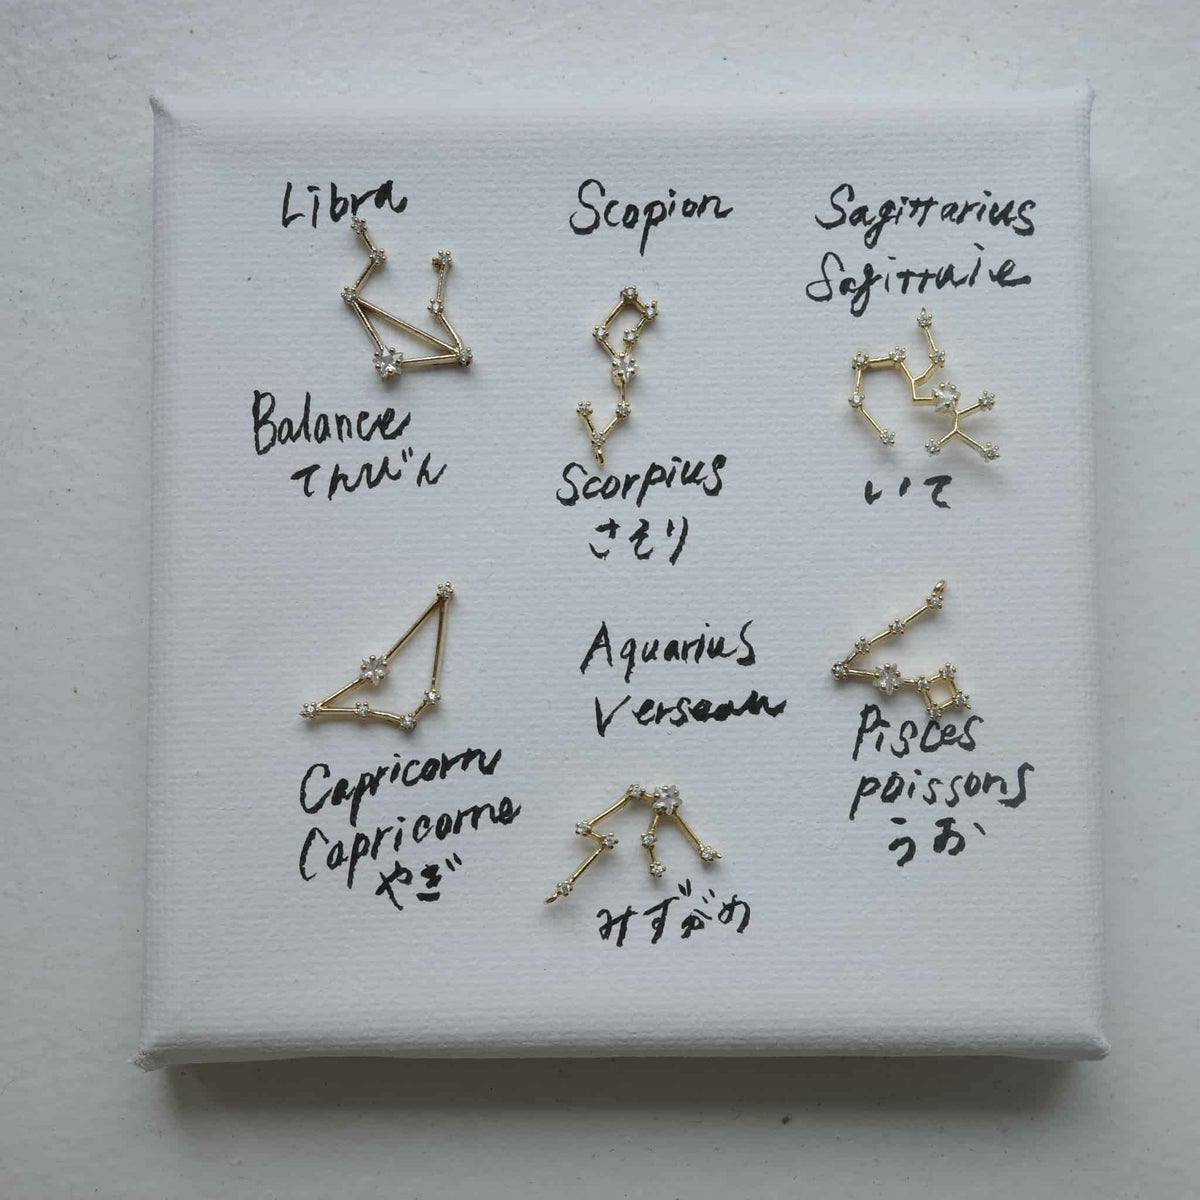 Libra
Balance
てんびん
Scopion
Scorpius
さそり
Sagittarius
Sagittaie
いて
Capricorn
Capricorne
やぎ
Aquarius
Verseau
みずがめ
Pisces
poissons
うお